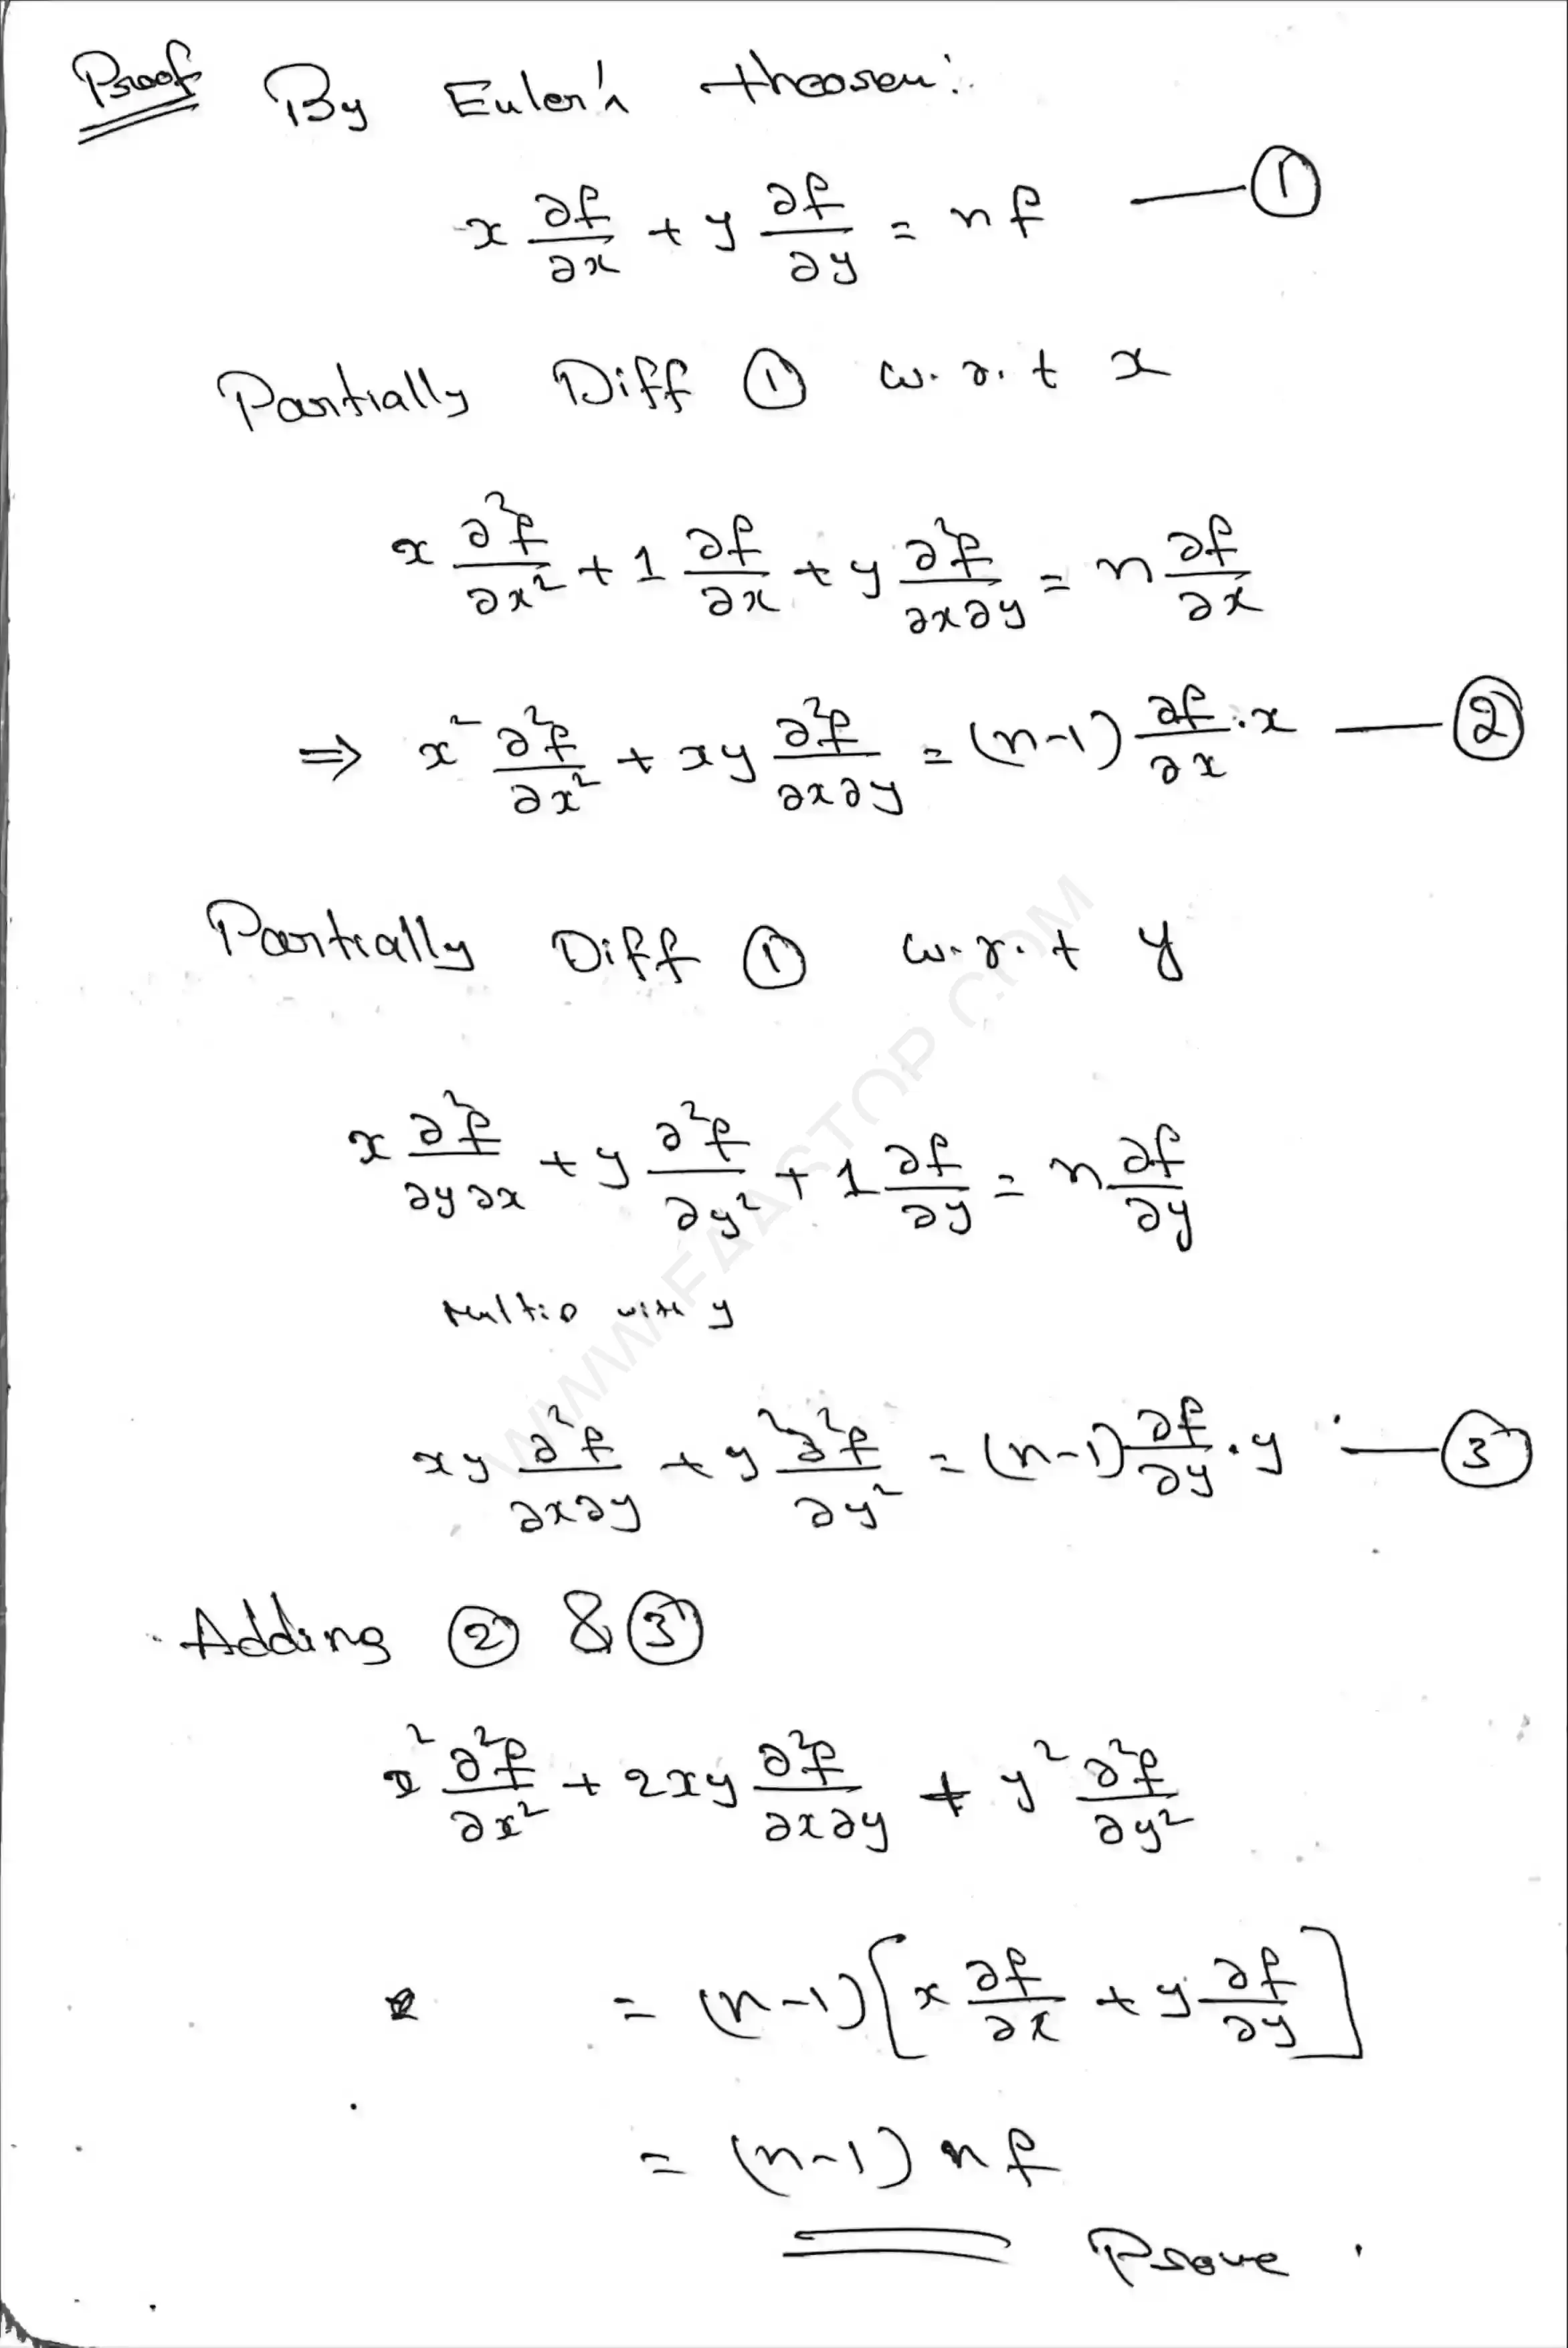 Proof By Euler's theorem:
x ∂f/∂x + y ∂f/∂y = nf —①
Partially Diff ① w.r.t x
x ∂²f/∂x² + 1 ∂f/∂x + y ∂²f/∂x∂y = n ∂f/∂x
⇒ x² ∂²f/∂x² + xy ∂²f/∂x∂y = (n-1) ∂f/∂x · x —②
Partially Diff ① w.r.t y
x ∂²f/∂y∂x + y ∂²f/∂y² + 1 ∂f/∂y = n ∂f/∂y
Multip with y
xy ∂²f/∂x∂y + y² ∂²f/∂y² = (n-1) ∂f/∂y · y —③
Adding ② & ③
x² ∂²f/∂x² + 2xy ∂²f/∂x∂y + y² ∂²f/∂y²
= (n-1) [x ∂f/∂x + y ∂f/∂y]
= (n-1) nf
Prove .
WWW.FAASTOP.COM